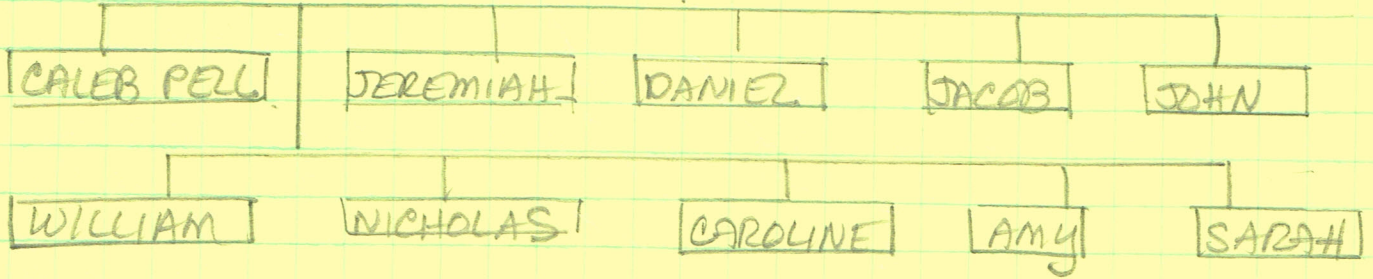 CALEB PELL JEREMIAH DANIEL JACOB JOHN
WILLIAM NICHOLAS CAROLINE AMY SARAH